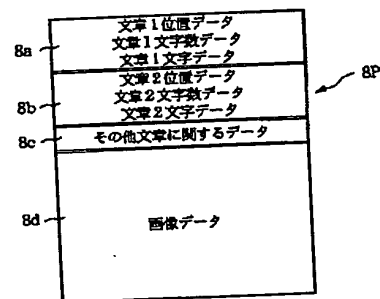 8a
文章1位置データ
文章1文字数データ
文章1文字データ
8b
文章2位置データ
文章2文字数データ
文章2文字データ
8P
8c
その他文章に関するデータ
8d
画像データ